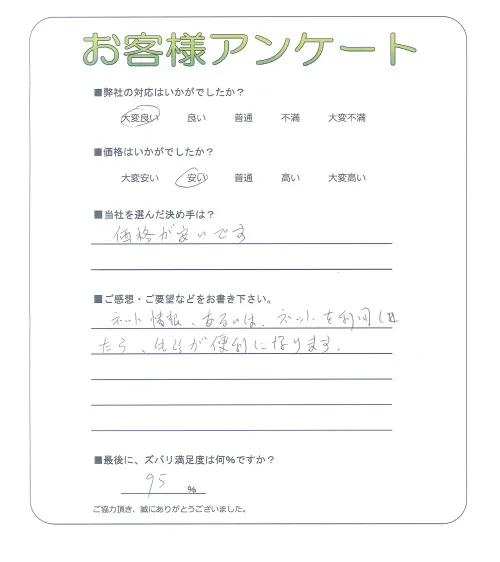 お客様アンケート
■弊社の対応はいかがでしたか？
大変良い 良い 普通 不満 大変不満
■価格はいかがでしたか？
大変安い 安い 普通 高い 大変高い
■当社を選んだ決め手は？
価格が安いです
■ご感想・ご要望などをお書き下さい。
ネット情報、あるいは、ネットを利用し
たら、が便利になります。
■最後に、ズバリ満足度は何％ですか？
95 %
ご協力頂き、誠にありがとうございました。